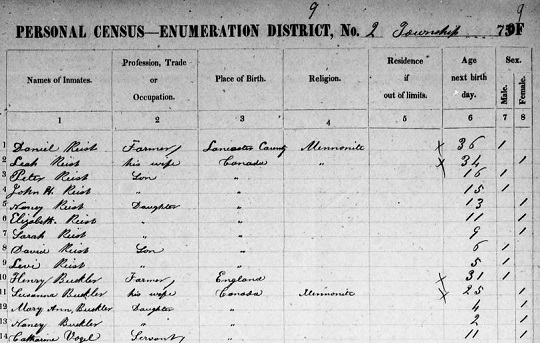 9
PERSONAL CENSUS—ENUMERATION DISTRICT, No. 2 Township OF
9
Names of Inmates. Profession, Trade or Occupation. Place of Birth. Religion. Residence if out of limits. Age next birth day. Sex. Male. Female.
1 2 3 4 5 6 7 8
1 Daniel Reist Farmer Lancaster County Mennonite x 36 1
2 Leah Reist his wife Canada " x 34 1
3 Peter Reist Son " 16 1
4 John H. Reist " " 15 1
5 Nancy Reist Daughter " 13 1
6 Elizabeth Reist " " 11 1
7 Sarah Reist " " 9 1
8 David Reist Son " 6 1
9 Levi Reist " " 5 1
10 Henry Buckler Farmer England x 31 1
11 Susanna Buckler his wife Canada Mennonite x 25 1
12 Mary Ann Buckler Daughter " 4 1
13 Nancy Buckler " " 2 1
14 Catharine Vogel Servant " 11 1